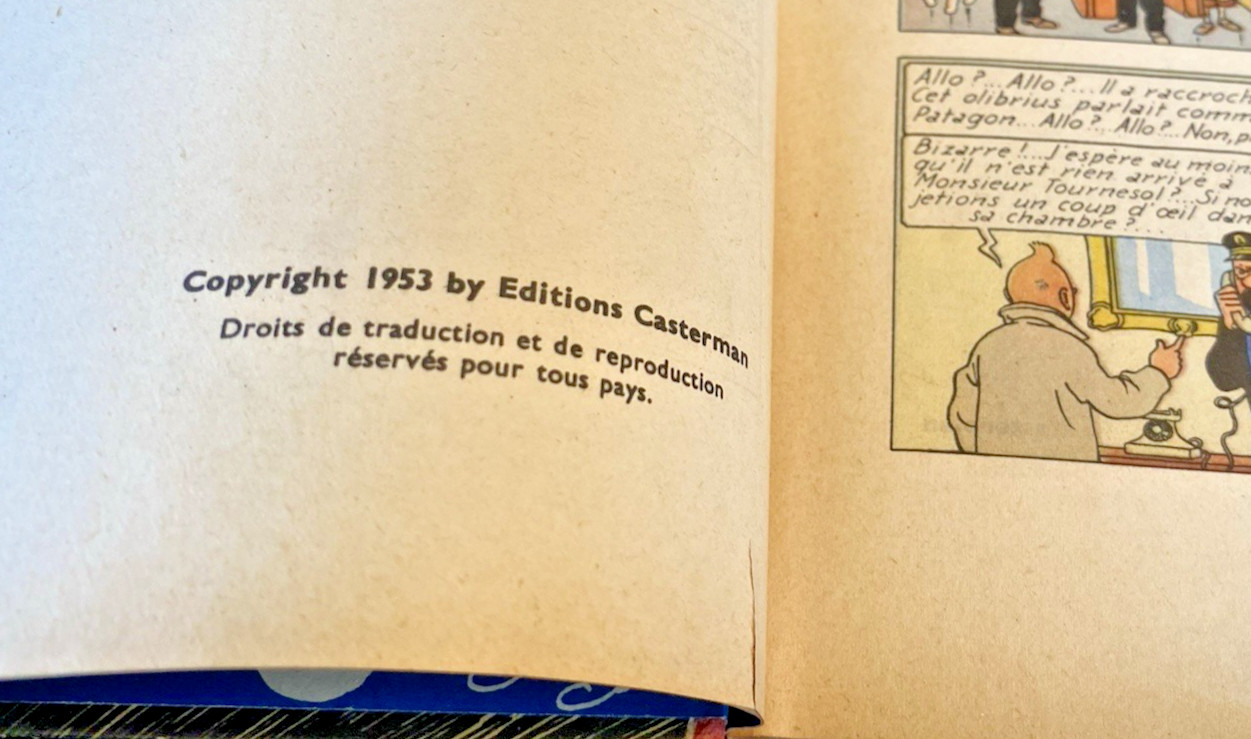 Copyright 1953 by Editions Casterman
Droits de traduction et de reproduction
réservés pour tous pays.
Allo ?... Allo ?... Il a
Cet olibrius parlait
Patagon... Allo ?.. Allo ?.. Non,
Bizarre !... J'espère au
qu'il n'est rien arrivé à
Monsieur Tournesol ?... Si
jetions un coup d'œil
sa chambre ?...